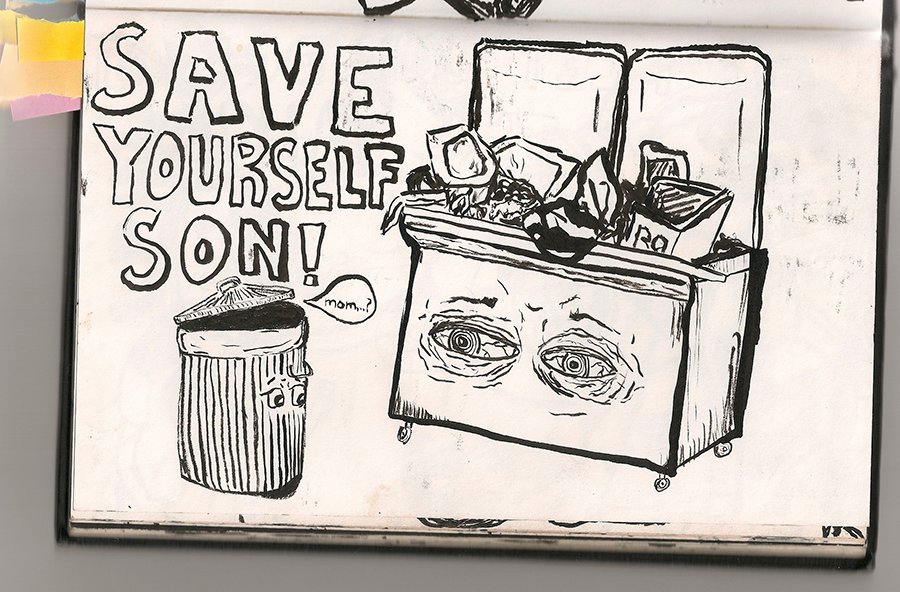 SAVE
YOURSELF
SON!
mom...?
RO